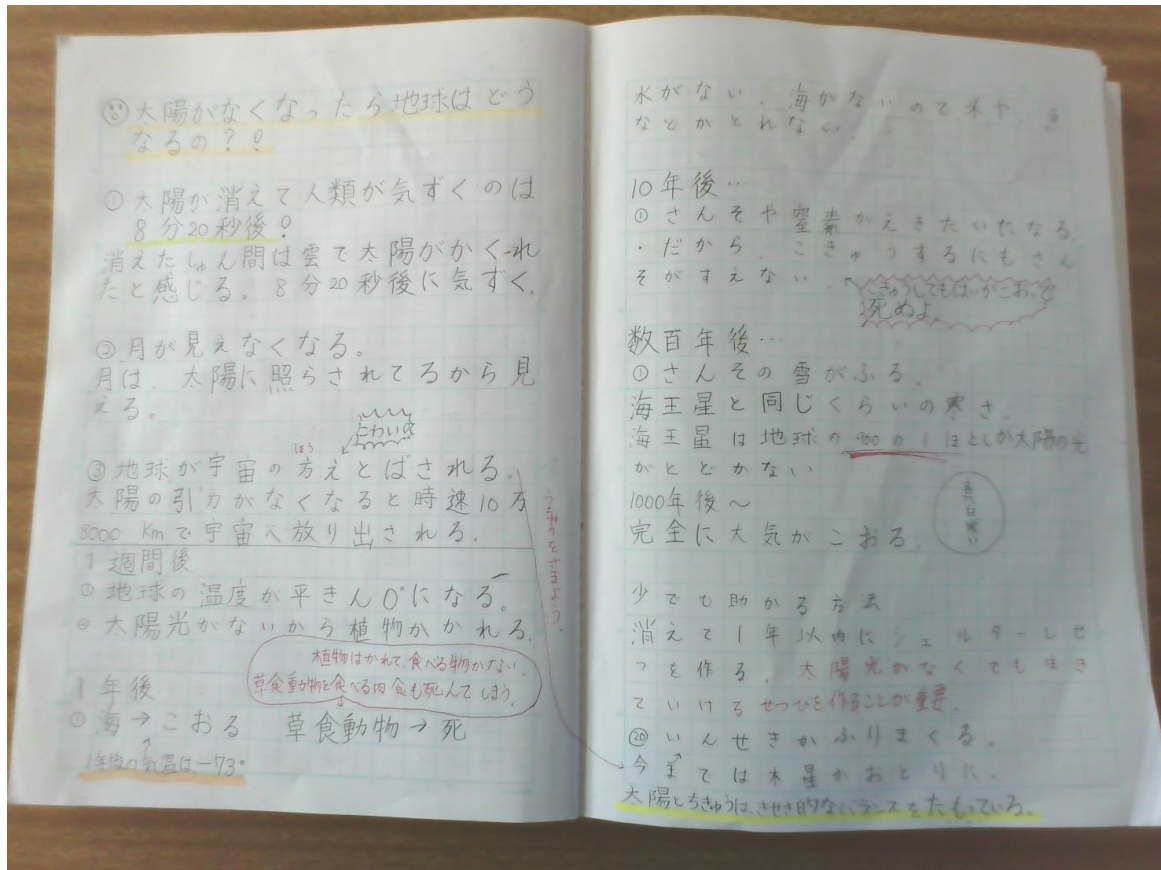 太陽がなくなったら地球はどう
なるの？？
① 太陽が消えて人類が気ずくのは
8分20秒後？
消えたしゅん間は雲で太陽がかくれ
たと感じる。8分20秒後に気ずく。
② 月が見えなくなる。
月は、太陽に照らされてるから見
える。
こわいよ
ほう
③ 地球が宇宙の方えとばされる。
太陽の引力がなくなると時速10万
8000 Kmで宇宙へ放り出される。
うちゅうをさまよう。
1週間後
① 地球の温度が平きん0°になる。
② 太陽光がないから植物がかれる。
植物はかれて、食べる物がない。
草食動物を食べる肉食も死んでしまう。
1年後
① 海→こおる 草食動物→死
1年後の気温は-73°
水がない、海がないので米や、魚
などがとれない。
10年後…
① さんそや窒素がえきたいになる。
・だから、こきゅうするにもさん
そがすえない。
こきゅうしてもはいがこおって
死ぬよ。
数百年後…
① さんその雪がふる。
海王星と同じくらいの寒さ。
海王星は地球の900の1ほどしか太陽の光
がとどかない
1000年後～
完全に大気がこおる。
少でも助かる方法
消えて1年以内にシェルターしせ
つを作る。太陽光がなくても生き
ていけるせつびを作ることが重要。
⑳ いんせきがふりまくる。
今までは木星がおとりに。
太陽とちきゅうは、きせき的なバランスをたもっている。